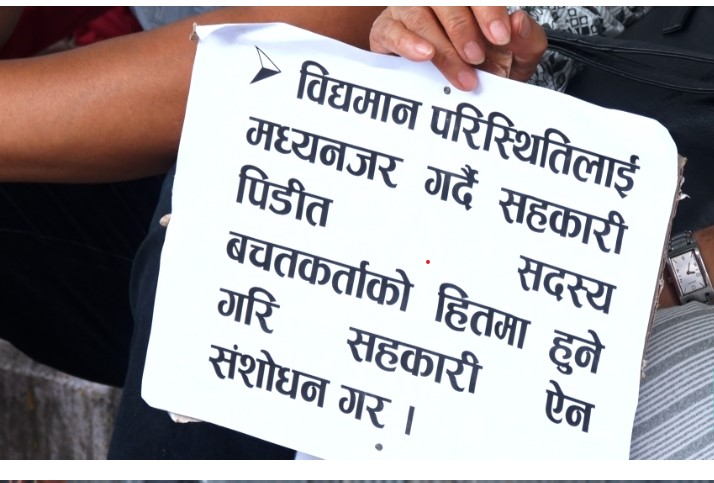 ➢ विद्यमान परिस्थितिलाई
मध्यनजर गर्दै सहकारी
पिडीत सदस्य
बचतकर्ताको हितमा हुने
गरि सहकारी ऐन
संशोधन गर ।